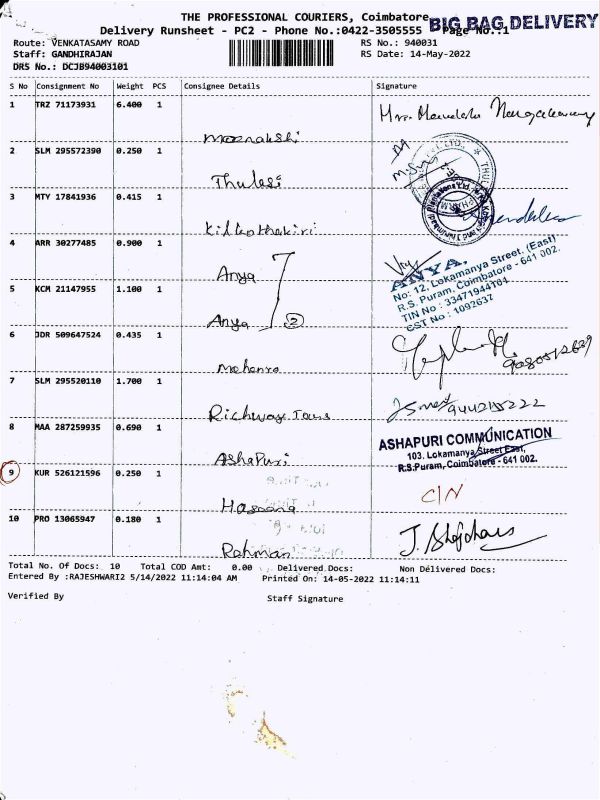 THE PROFESSIONAL COURIERS, Coimbatore
BIG BAG DELIVERY
Delivery Runsheet - PC2 - Phone No.:0422-3505555 Page No.:1
Route: VENKATASAMY ROAD
RS No.: 940031
Staff: GANDHIRAJAN
RS Date: 14-May-2022
DRS No.: DCJB94003101
S No Consignment No Weight PCS Consignee Details Signature
1 TRZ 71173931 6.400 1
Meenakshi
2 SLM 295572390 0.250 1
Thulasi
3 MTY 17841936 0.415 1
4 ARR 30277485 0.900 1
Anya
ANYA,
No: 12, Lokamanya Street, (East)
R.S. Puram, Coimbatore - 641 002.
TIN No : 33471944104
CST No : 1092637
5 KCM 21147955 1.100 1
Anya 2
6 JDR 509647524 0.435 1
7 SLM 295520110 1.700 1
Richway Tours
8 MAA 287259935 0.690 1
Ashapuri
ASHAPURI COMMUNICATION
103, Lokamanya Street East,
R.S.Puram, Coimbatore - 641 002.
9 KUR 526121596 0.250 1
C/N
10 PRO 13065947 0.180 1
Rahman
Total No. Of Docs: 10 Total COD Amt: 0.00 Delivered Docs: Non Delivered Docs:
Entered By :RAJESHWARI2 5/14/2022 11:14:04 AM Printed On: 14-05-2022 11:14:11
Verified By Staff Signature